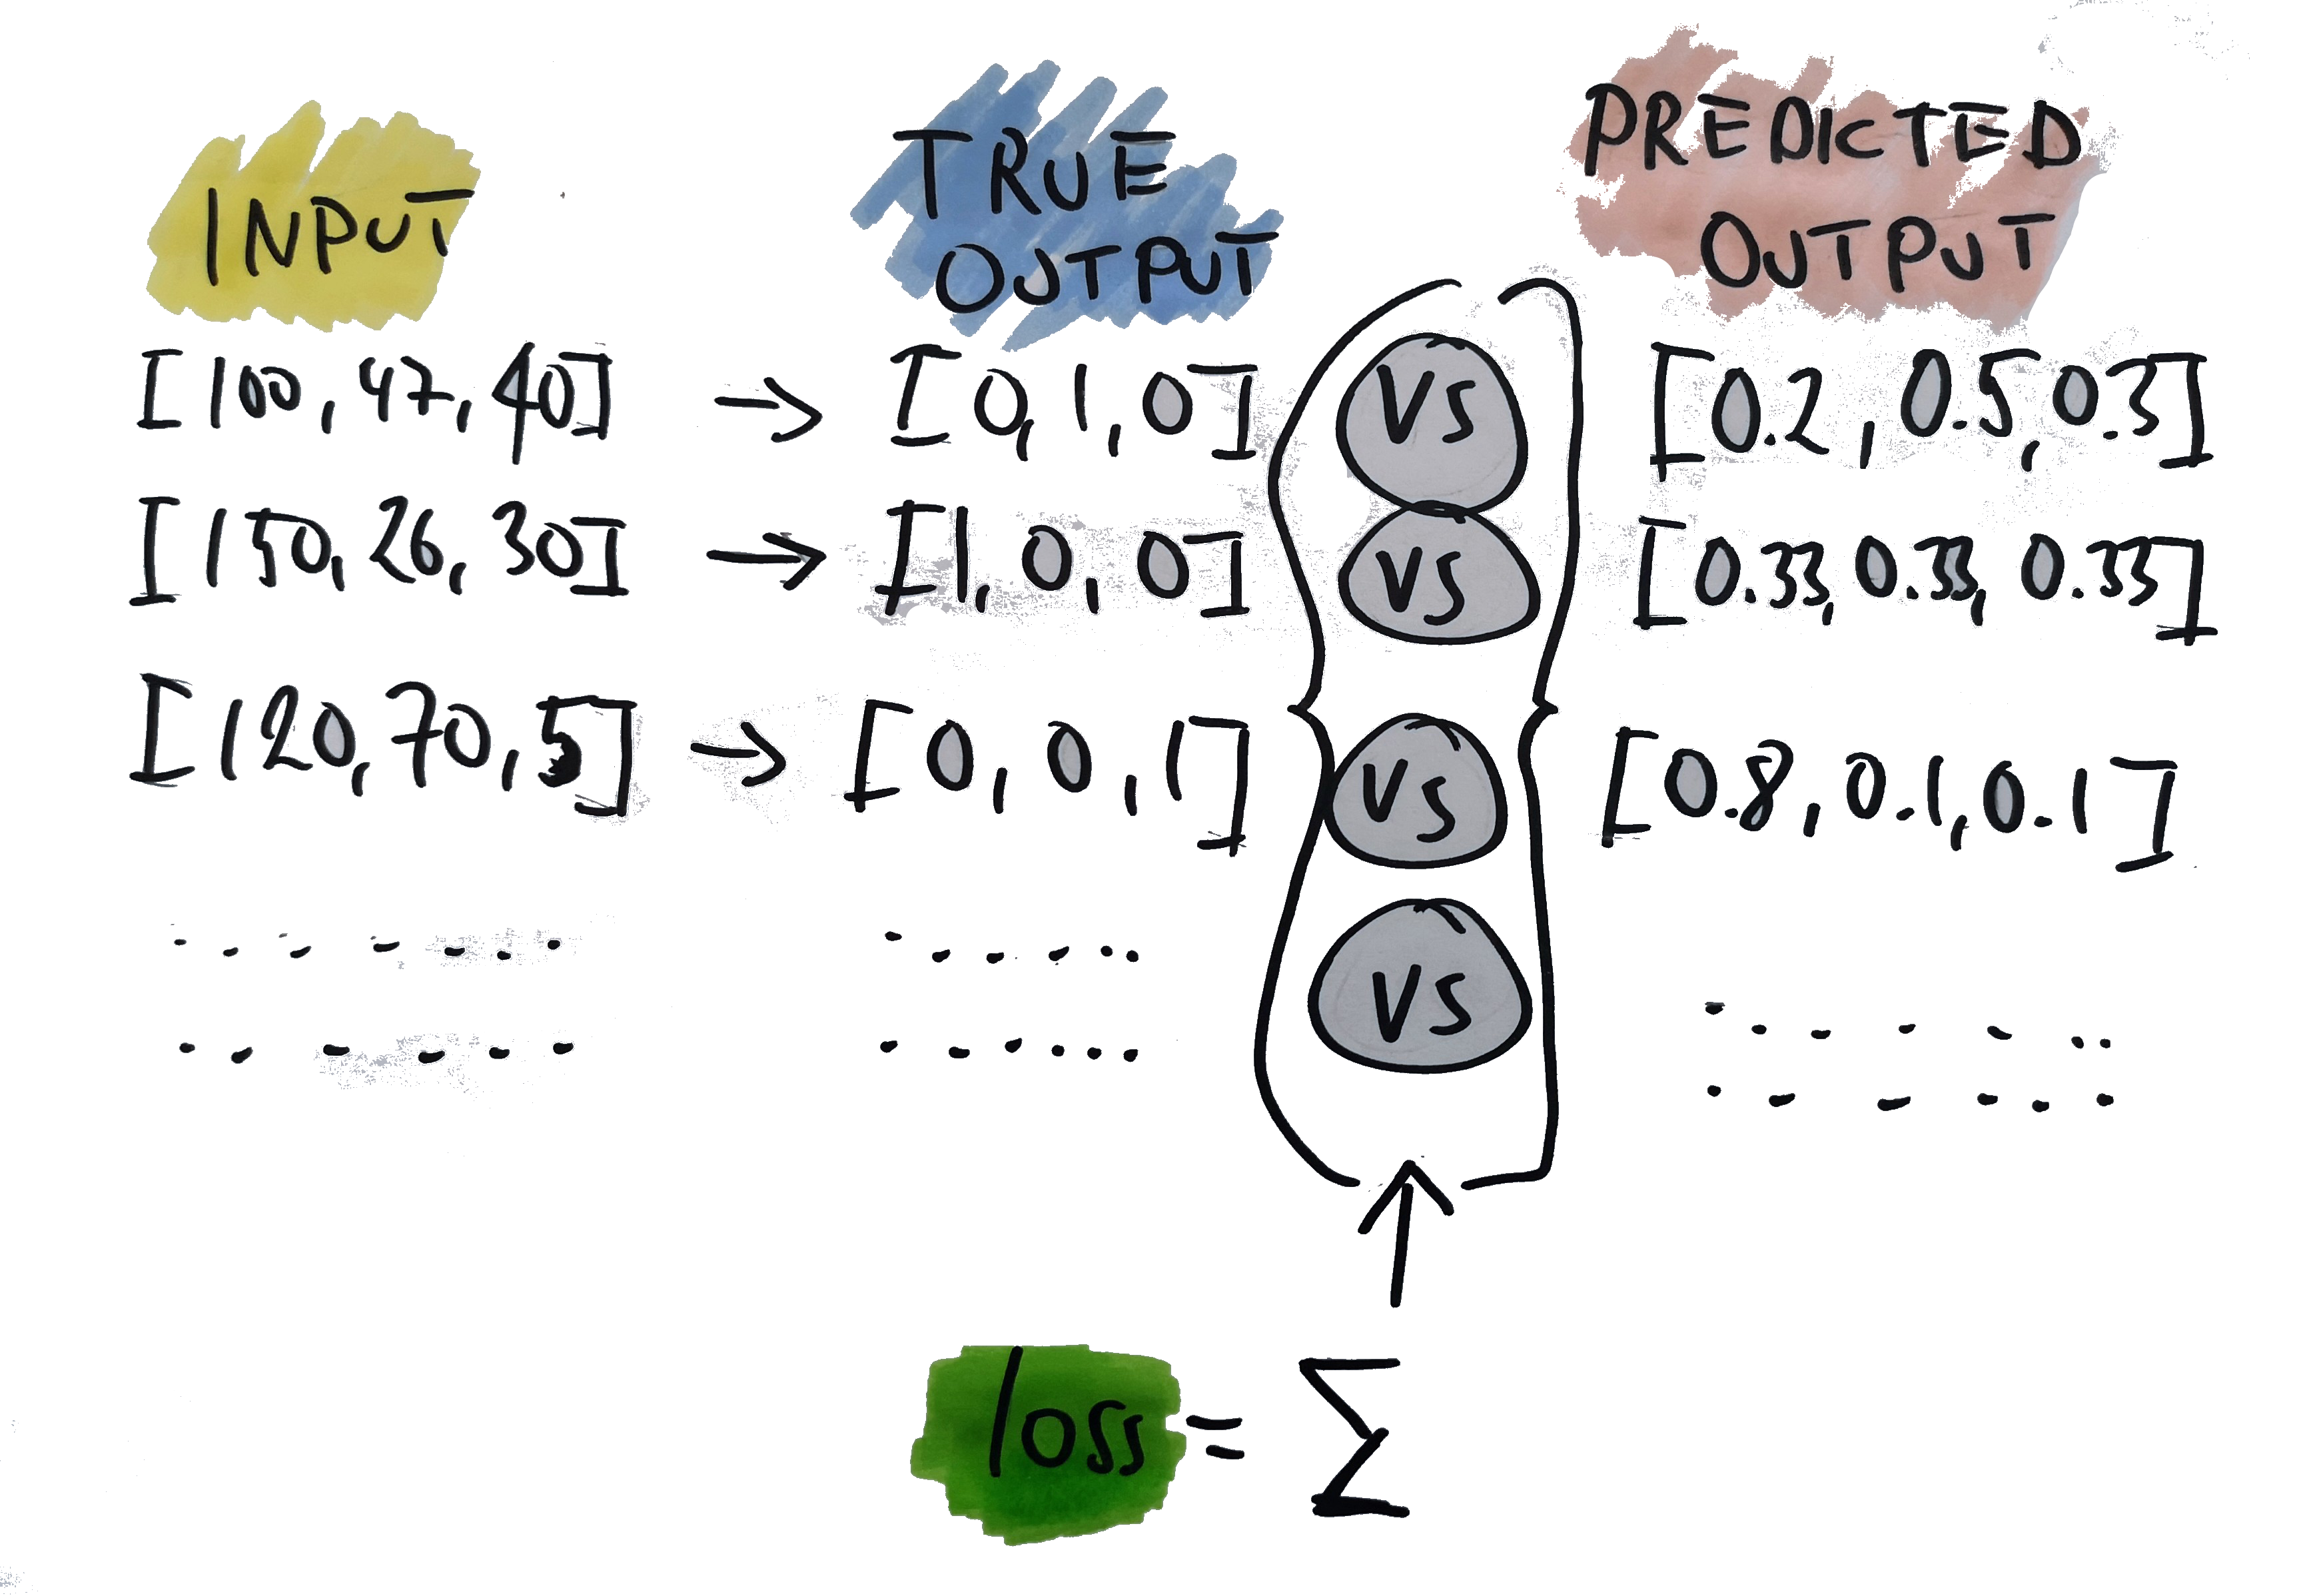 INPUT
TRUE
OUTPUT
PREDICTED
OUTPUT
[100, 47, 40] → [0, 1, 0] VS [0.2, 0.5, 0.3]
[150, 26, 30] → [1, 0, 0] VS [0.33, 0.33, 0.33]
[120, 70, 5] → [0, 0, 1] VS [0.8, 0.1, 0.1]
VS
loss = Σ